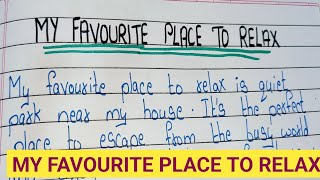 MY FAVOURITE PLACE TO RELAX
My favourite place to relax is quiet
park near my house. It's the perfect
place to escape from the busy world
MY FAVOURITE PLACE TO RELAX